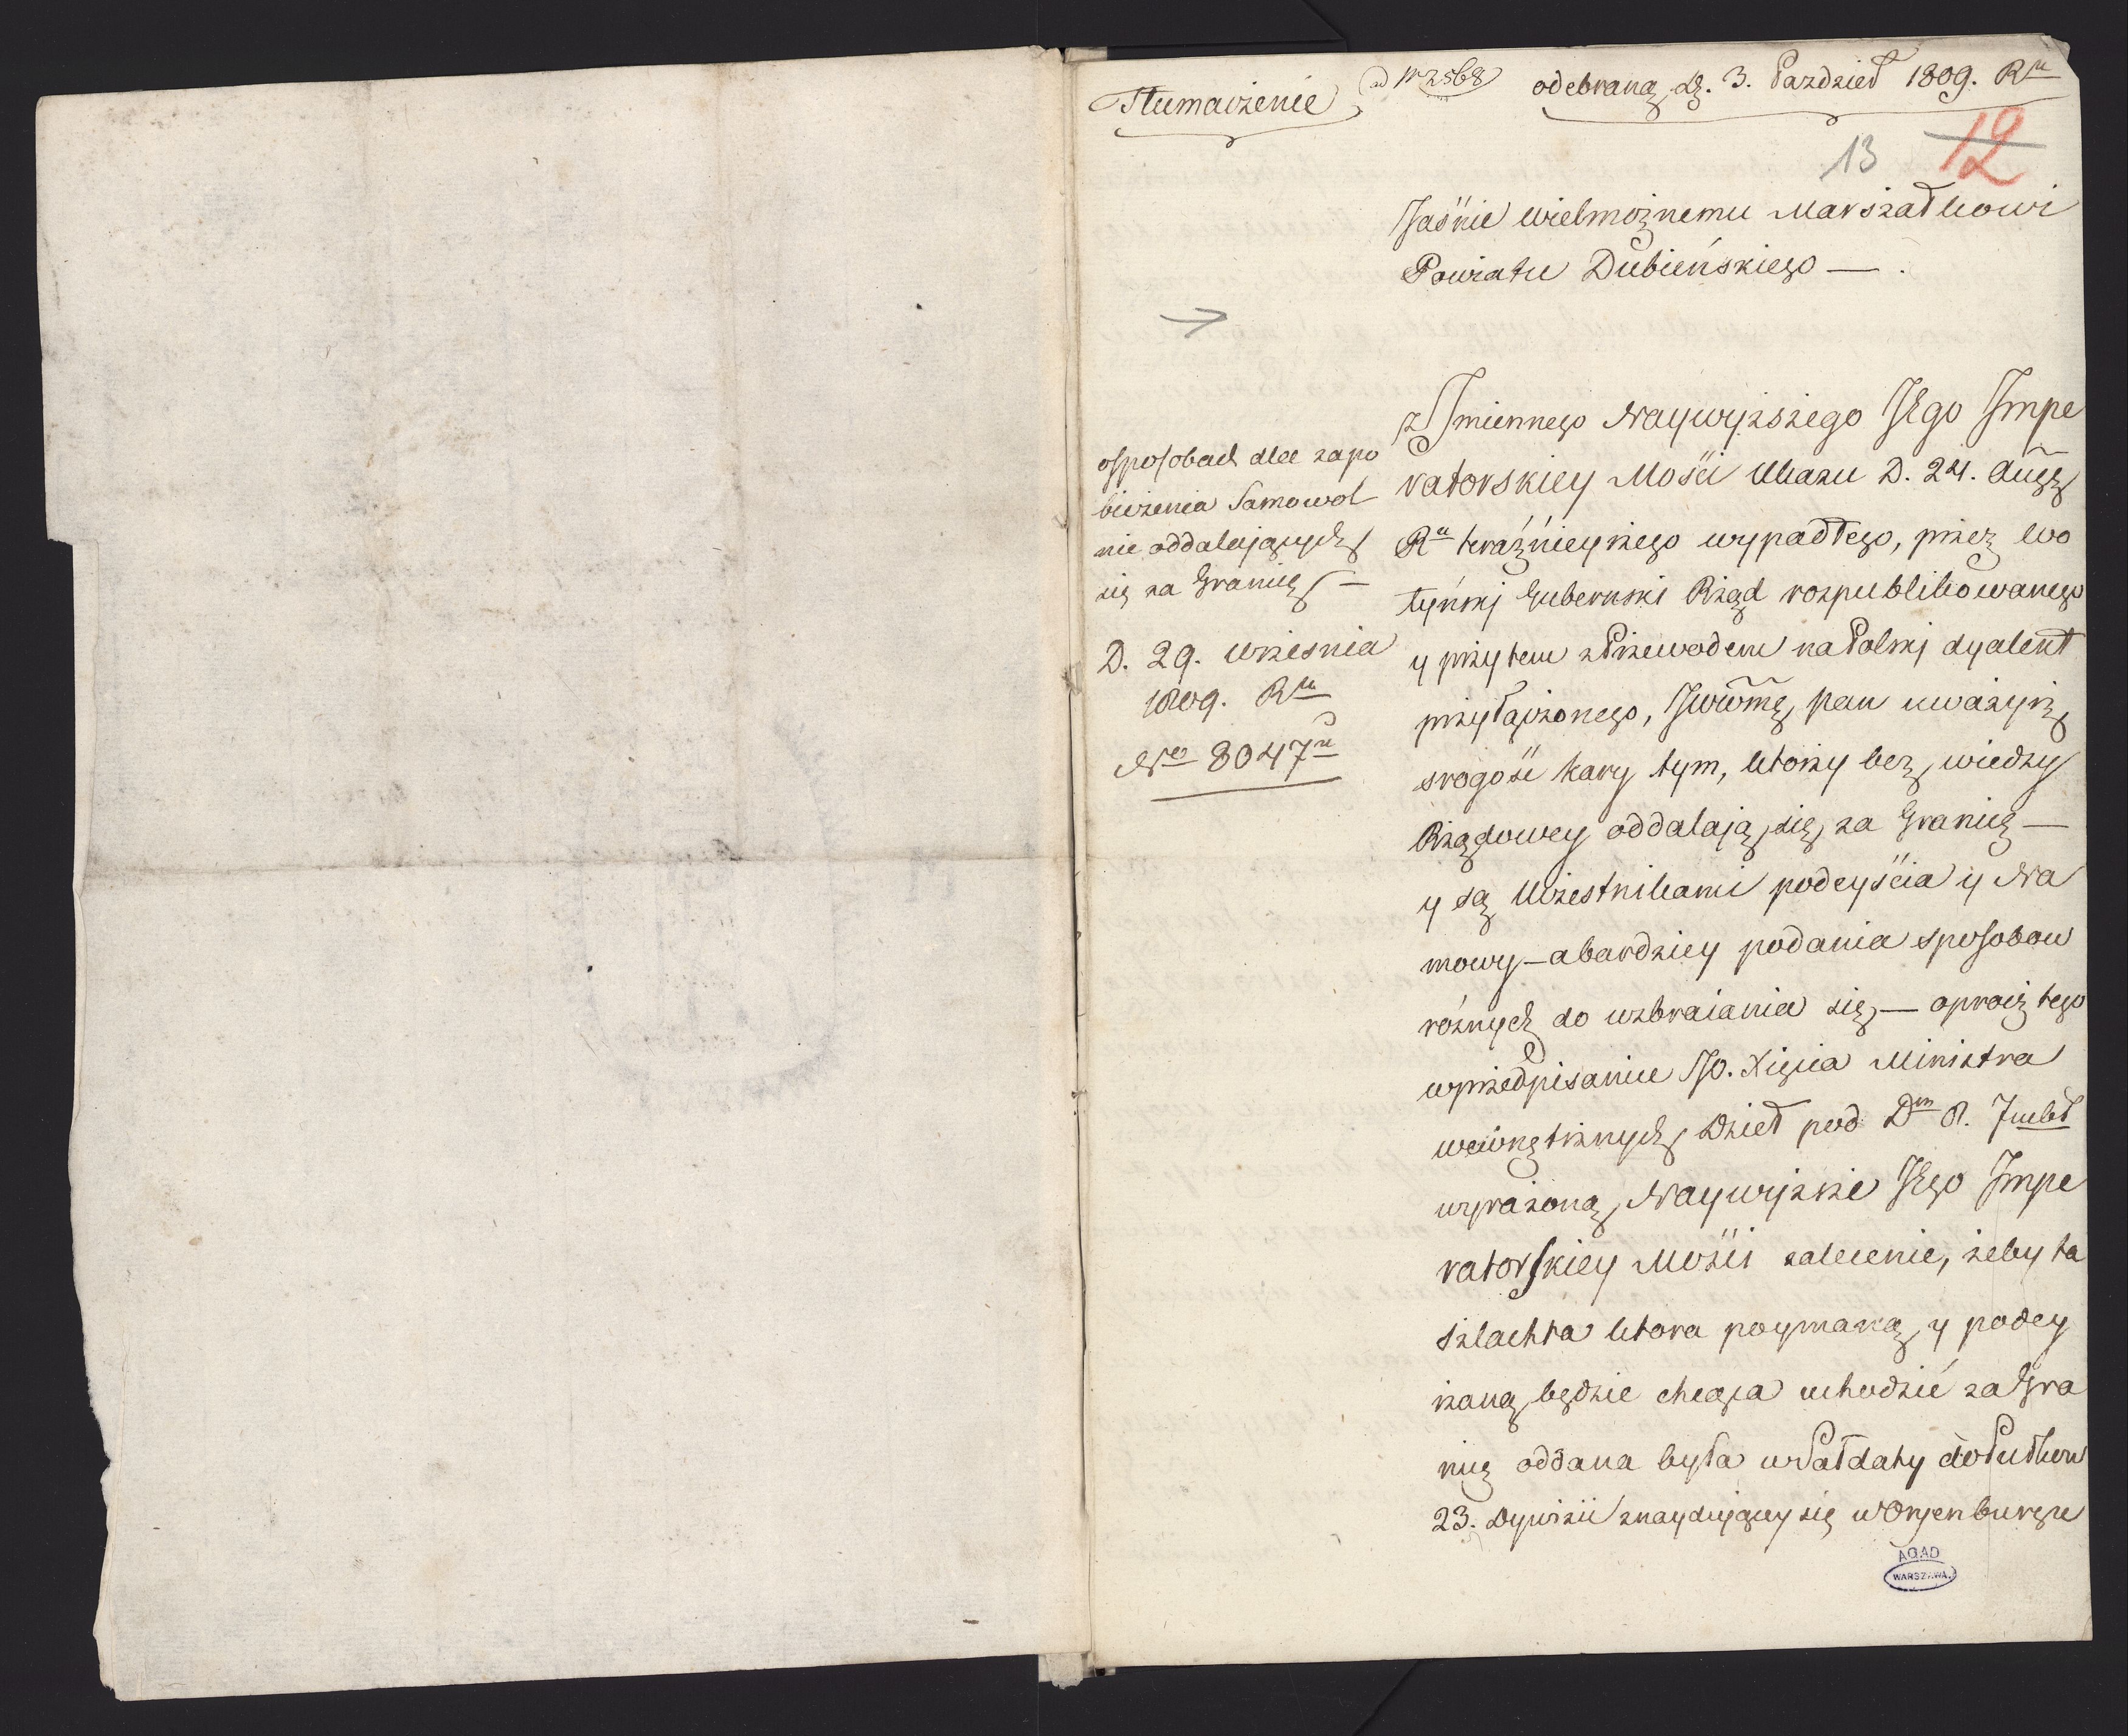 Tłumaczenie
ad Nr 2568
odebraną d. 3. Pazdzier 1809. Ru
13 12
Jaśnie wielmożnemu Marszałkowi
Powiatu Dubieńskiego — .
o sposobach dla zapo
bieżenia Samowol
nie oddalających
się za Granicę —
D. 29. Września
1809. Ru
No 8047u
z Jmiennego Naywyższego JEgo Jmpe
ratorskiey Mości Ukazu D. 24. Augę
Ru teraźnieyszego wypadłego, przez Wo
łyński Gubernski Rząd rozpublikowanego
y przytem z Przewodem na Polski dyalekt
przyłączonego, JWWmę pan uważysz
srogość kary tym, ktorzy bez wiedzy
Rządowey oddalają się za Granicę —
y są Uczestnikami podeyścia y Na
mowy — a bardziey podania sposobow
rożnych do wzbraiania się, — oprocz tego
w przedpisaniu JO. Xięcia Ministra
wewnętrznych Dzieł pod Dm 8. Julii
wyrażoną Naywyższe JEgo Jmpe
ratorskiey Mości zalecenie, żeby ta
szlachta ktora poymaną y podey
rzaną będzie chcąca uchodzić za Gra
nicę oddana była w Sałdaty do Pułkow
23. Dywizii znayduiącey się w Orjenburgu
AGAD
WARSZAWA